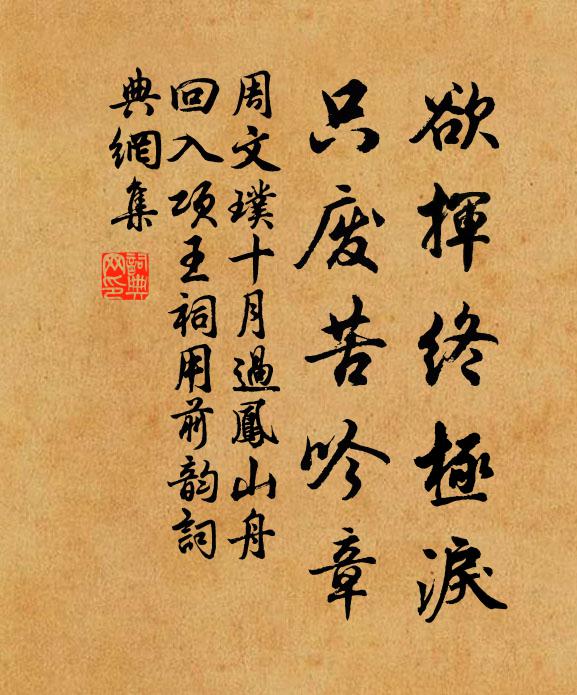 欲揮終極淚
只廢苦吟章
周文璞十月過鳳山舟
回入項王祠用前韵詞
典網集
詞典網印